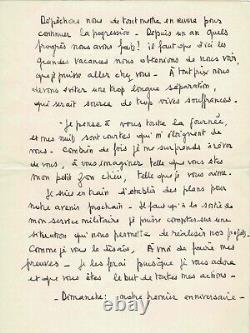 Dépêchons nous de tout mettre en œuvre pour
continuer la progression - Depuis un an quels
progrès nous avons fait! il faut que d'ici les
grandes vacances nous obtenions de nous voir,
que je puisse aller chez vous - A tout prix nous
devons éviter une trop longue séparation,
qui serait source de trop vives souffrances.
- Je pense à vous toute la journée,
et mes nuits sont courtes qui m'éloignent de
vous - Combien de fois je me surprends à rêver
de vous, à vous imaginer telle que vous êtes
mon petit Zon chéri, telle que je vous aime.
Je suis en train d'établir des plans pour
notre avenir prochain - Il faut qu'à la sortie de
mon service militaire je puisse compter sur une
situation qui nous permette de réaliser nos projets.
Comme je vous le disais, à moi de faire mes
preuves - Je les ferai puisque je vous adore
et que vous êtes le but de toutes mes actions -
- Dimanche: notre premier anniversaire -
© DAMARTIS